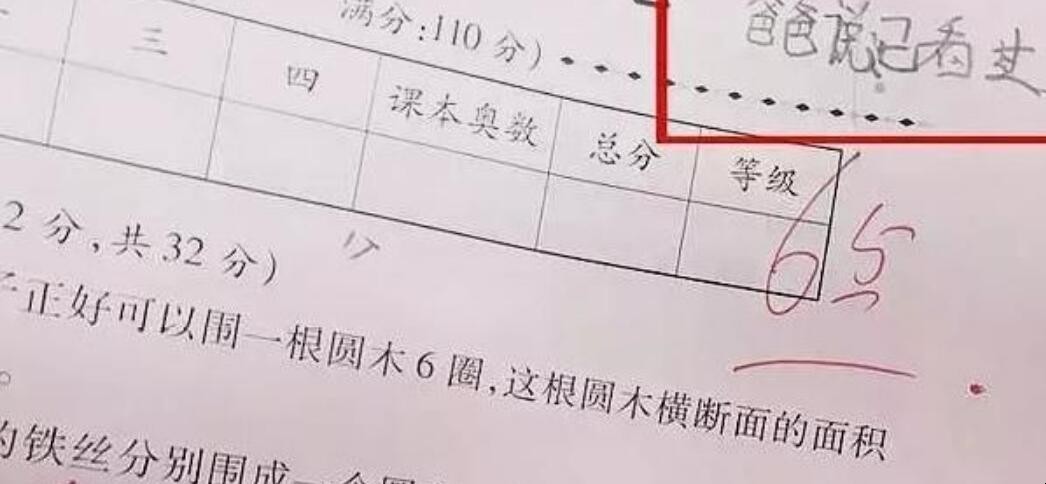 爸爸说已看过
满分:110 分)
三 四 课本奥数 总分 等级
65
2 分,共 32 分)
正好可以围一根圆木 6 圈,这根圆木横断面的面积
。
的铁丝分别围成一个圆